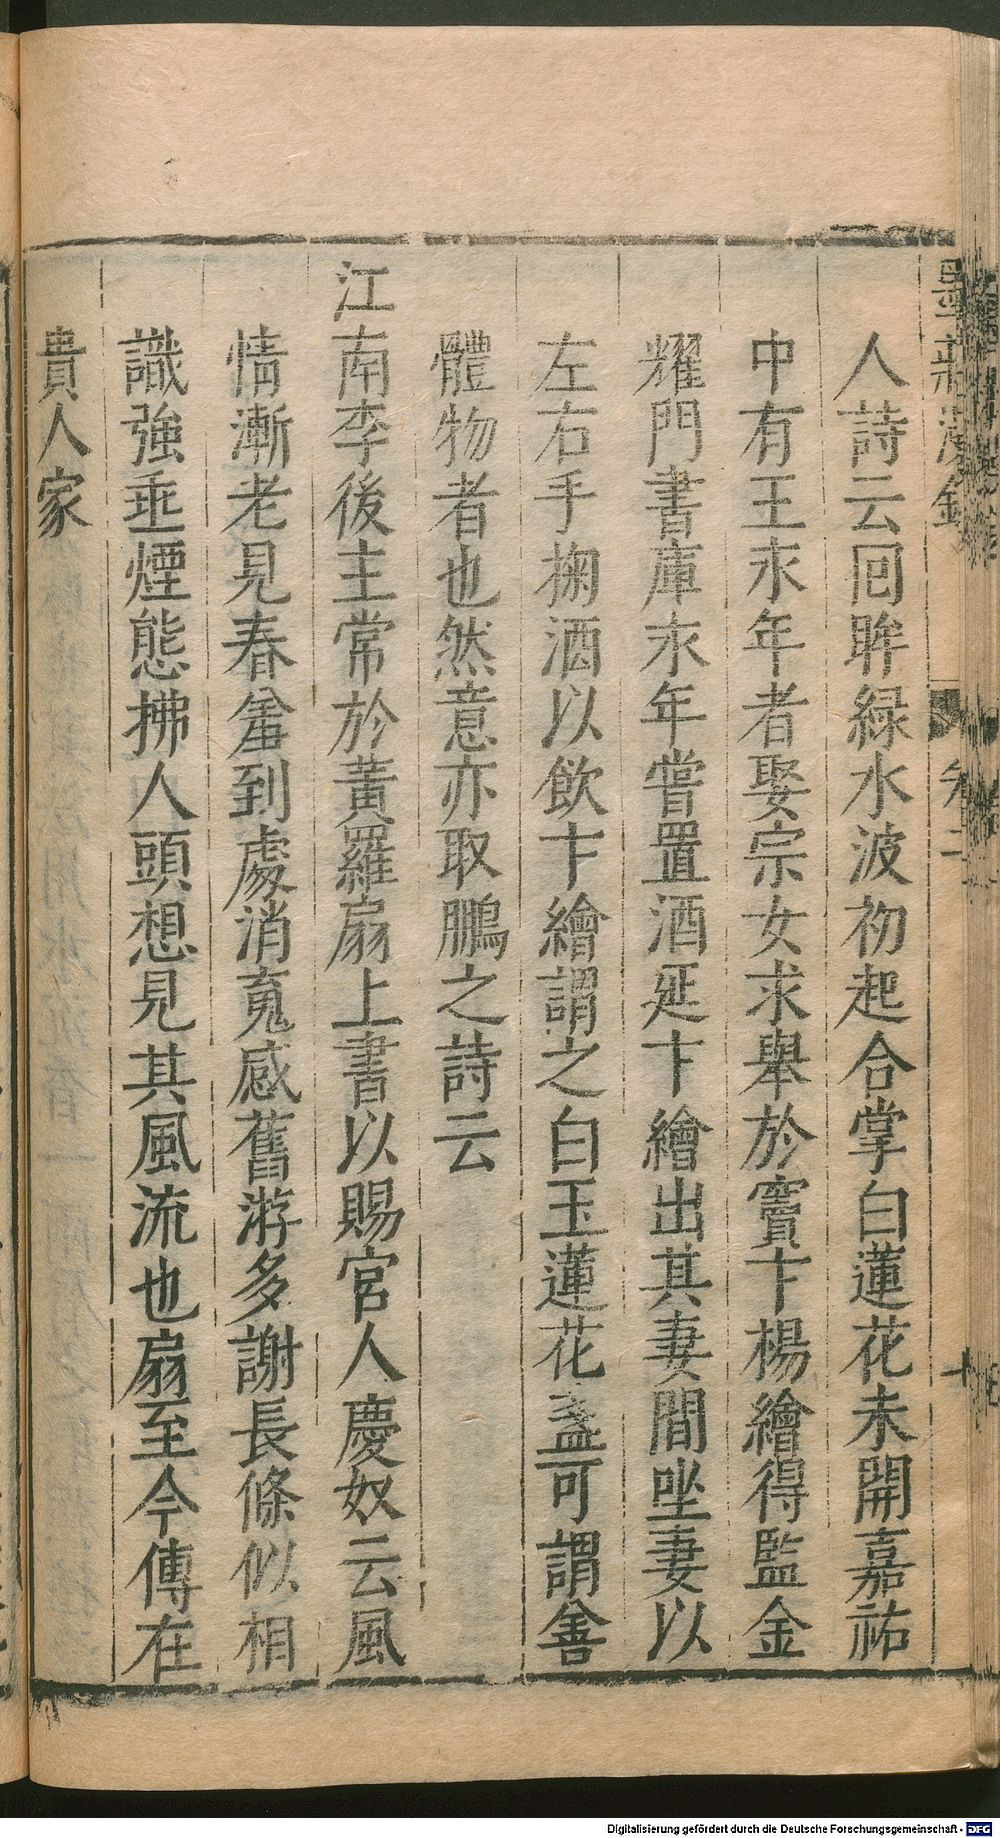 人詩云囘眸緑水波初起合掌白蓮花未開嘉祐
中有王永年者娶宗女求舉於竇卞楊繪得監金
耀門書庫永年嘗置酒延卞繪出其妻間坐妻以
左右手掬酒以飲卞繪謂之白玉蓮花盞可謂善
體物者也然意亦取鵬之詩云
江南李後主常於黃羅扇上書以賜宮人慶奴云風
情漸老見春羞到處消䰟感舊游多謝長條似相
識強垂煙態拂人頭想見其風流也扇至今傳在
貴人家
Digitalisierung gefördert durch die Deutsche Forschungsgemeinschaft - DFG